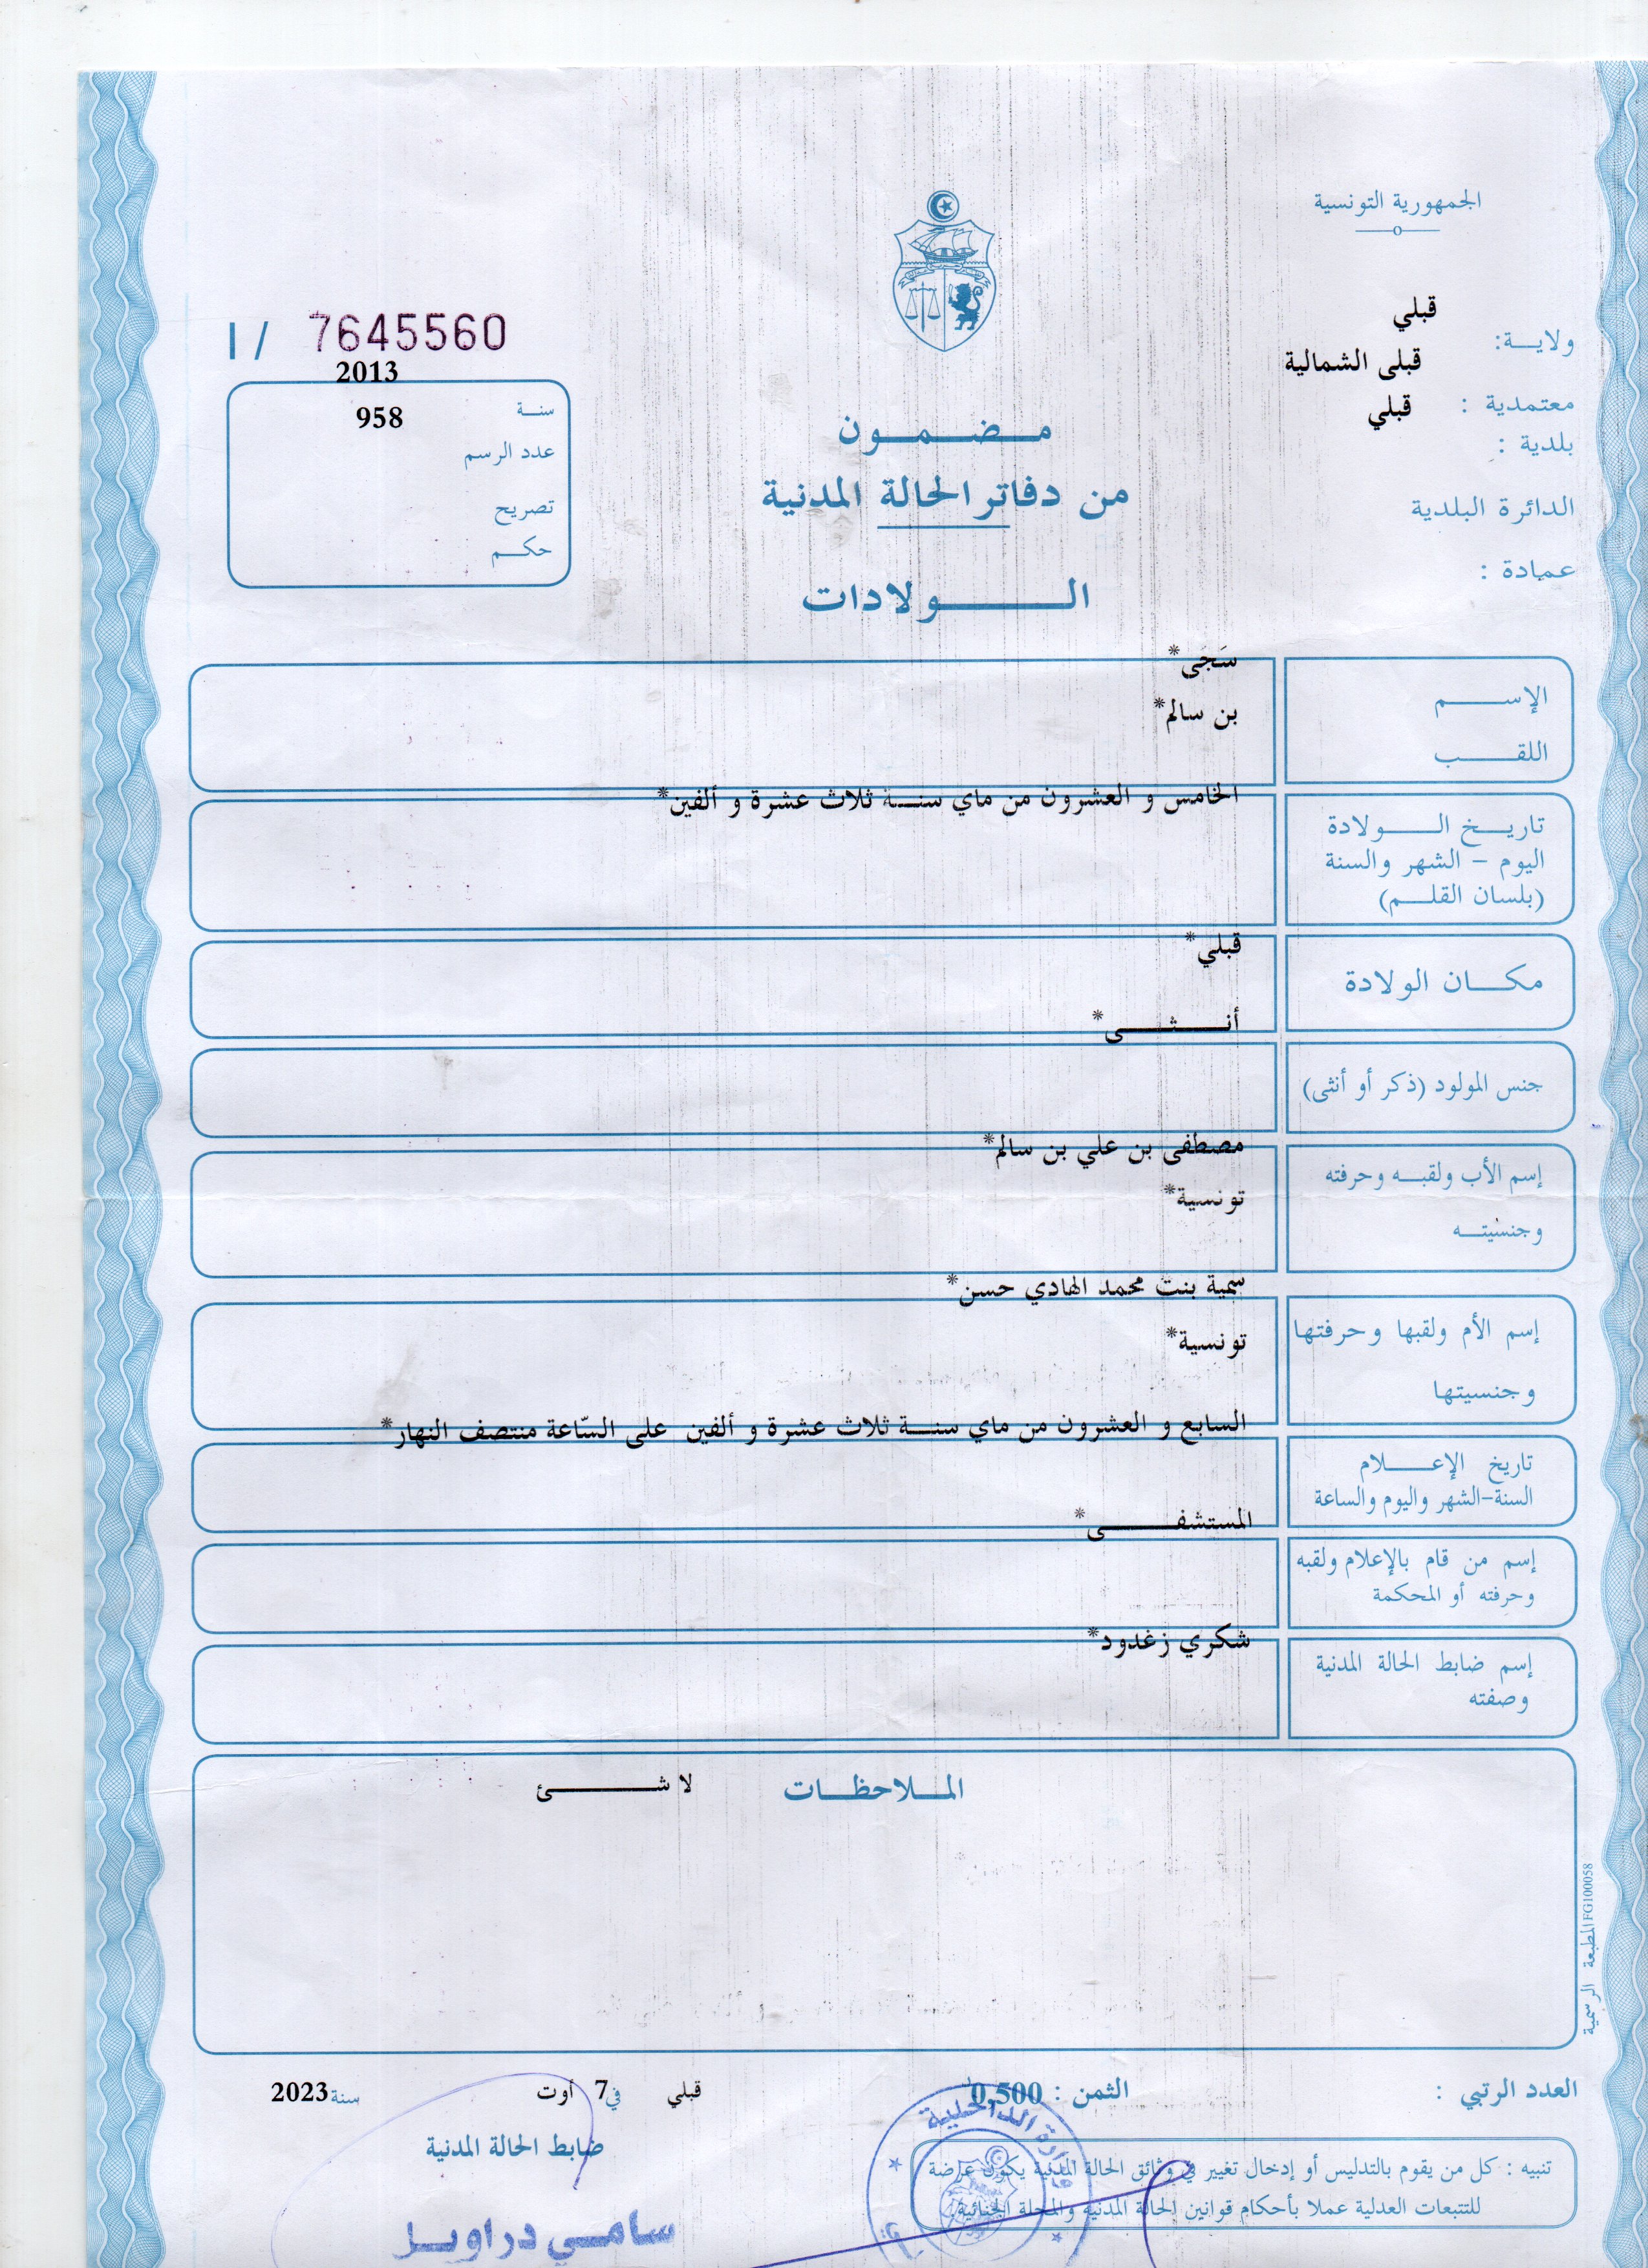 الجمهورية التونسية
ولايـــة: قبلي
معتمدية : قبلى الشمالية
بلدية : قبلي
الدائرة البلدية
عمادة :
I / 7645560
2013
سنة
958
عدد الرسم
تصريح
حكم
مضمون
من دفاتر الحالة المدنية
الولادات
الإسم
سَجَى*
اللقب
بن سالم*
تاريخ الولادة
اليوم - الشهر والسنة
(بلسان القلم)
الخامس و العشرون من ماي سنة ثلاث عشرة و ألفين*
مكان الولادة
قبلي*
جنس المولود (ذكر أو أنثى)
أنثى*
إسم الأب ولقبه وحرفته
وجنسيته
مصطفى بن علي بن سالم*
تونسية*
إسم الأم ولقبها وحرفتها
وجنسيتها
سمية بنت محمد الهادي حسن*
تونسية*
تاريخ الإعلام
السنة-الشهر واليوم والساعة
السابع و العشرون من ماي سنة ثلاث عشرة و ألفين على السّاعة منتصف النهار*
إسم من قام بالإعلام ولقبه
وحرفته أو المحكمة
المستشفى*
إسم ضابط الحالة المدنية
وصفته
شكري زغدود*
الملاحظات
لا شئ
المطبعة الرسمية FG100058
العدد الرتبي :
الثمن : 0,500
قبلي في 7 أوت سنة 2023
ضابط الحالة المدنية
تنبيه : كل من يقوم بالتدليس أو إدخال تغيير في وثائق الحالة المدنية يكون عرضة
للتتبعات العدلية عملا بأحكام قوانين الحالة المدنية والمجلة الجنائية
وزارة الداخلية
سامي دراويل